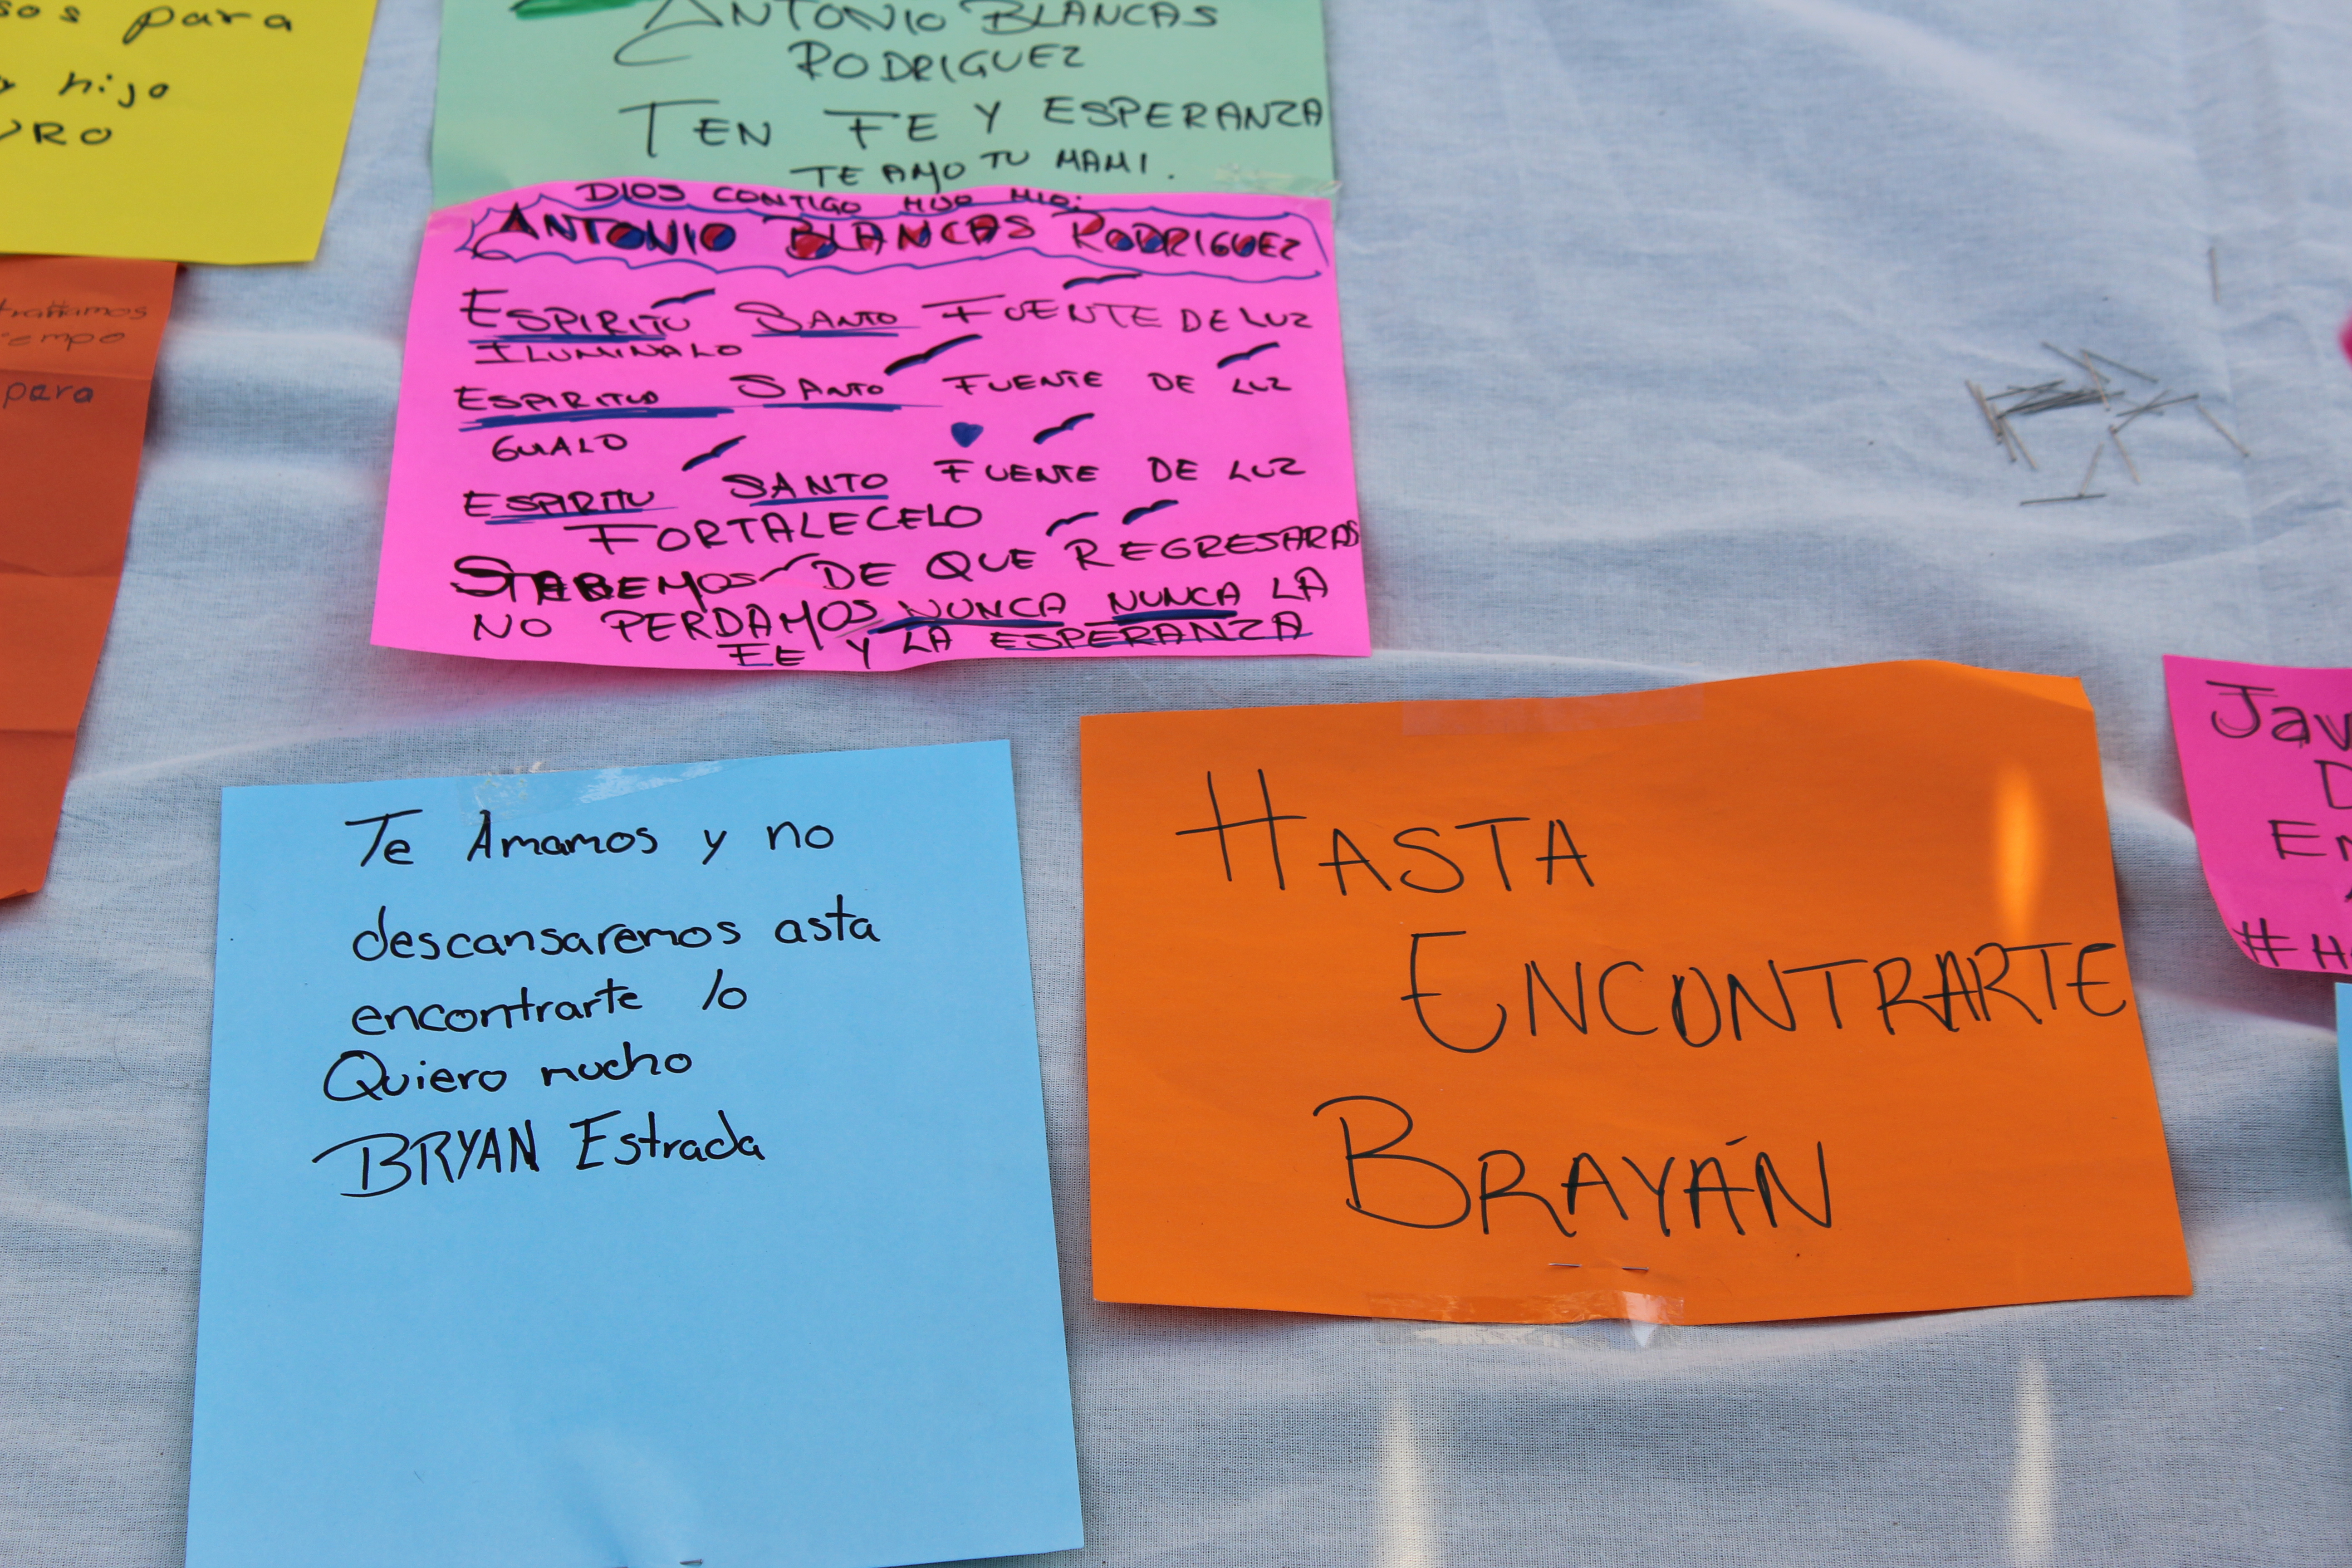 para
hijo
ANTONIO BLANCAS
RODRIGUEZ
TEN FE Y ESPERANZA
TE AMO TU MAMI.
DIOS CONTIGO HIJO MIO:
ANTONIO BLANCAS RODRIGUEZ
ESPIRITU SANTO FUENTE DE LUZ
ILUMINALO
ESPIRITUO SANTO FUENTE DE LUZ
GUALO
ESPIRITU SANTO FUENTE DE LUZ
FORTALECELO
SABEMOS DE QUE REGRESARAS
NO PERDAMOS NUNCA NUNCA LA
FE Y LA ESPERANZA
para
Te Amamos y no
descansaremos asta
encontrarte lo
Quiero mucho
BRYAN Estrada
HASTA
ENCONTRARTE
BRAYÁN
Jav
D
En
#H